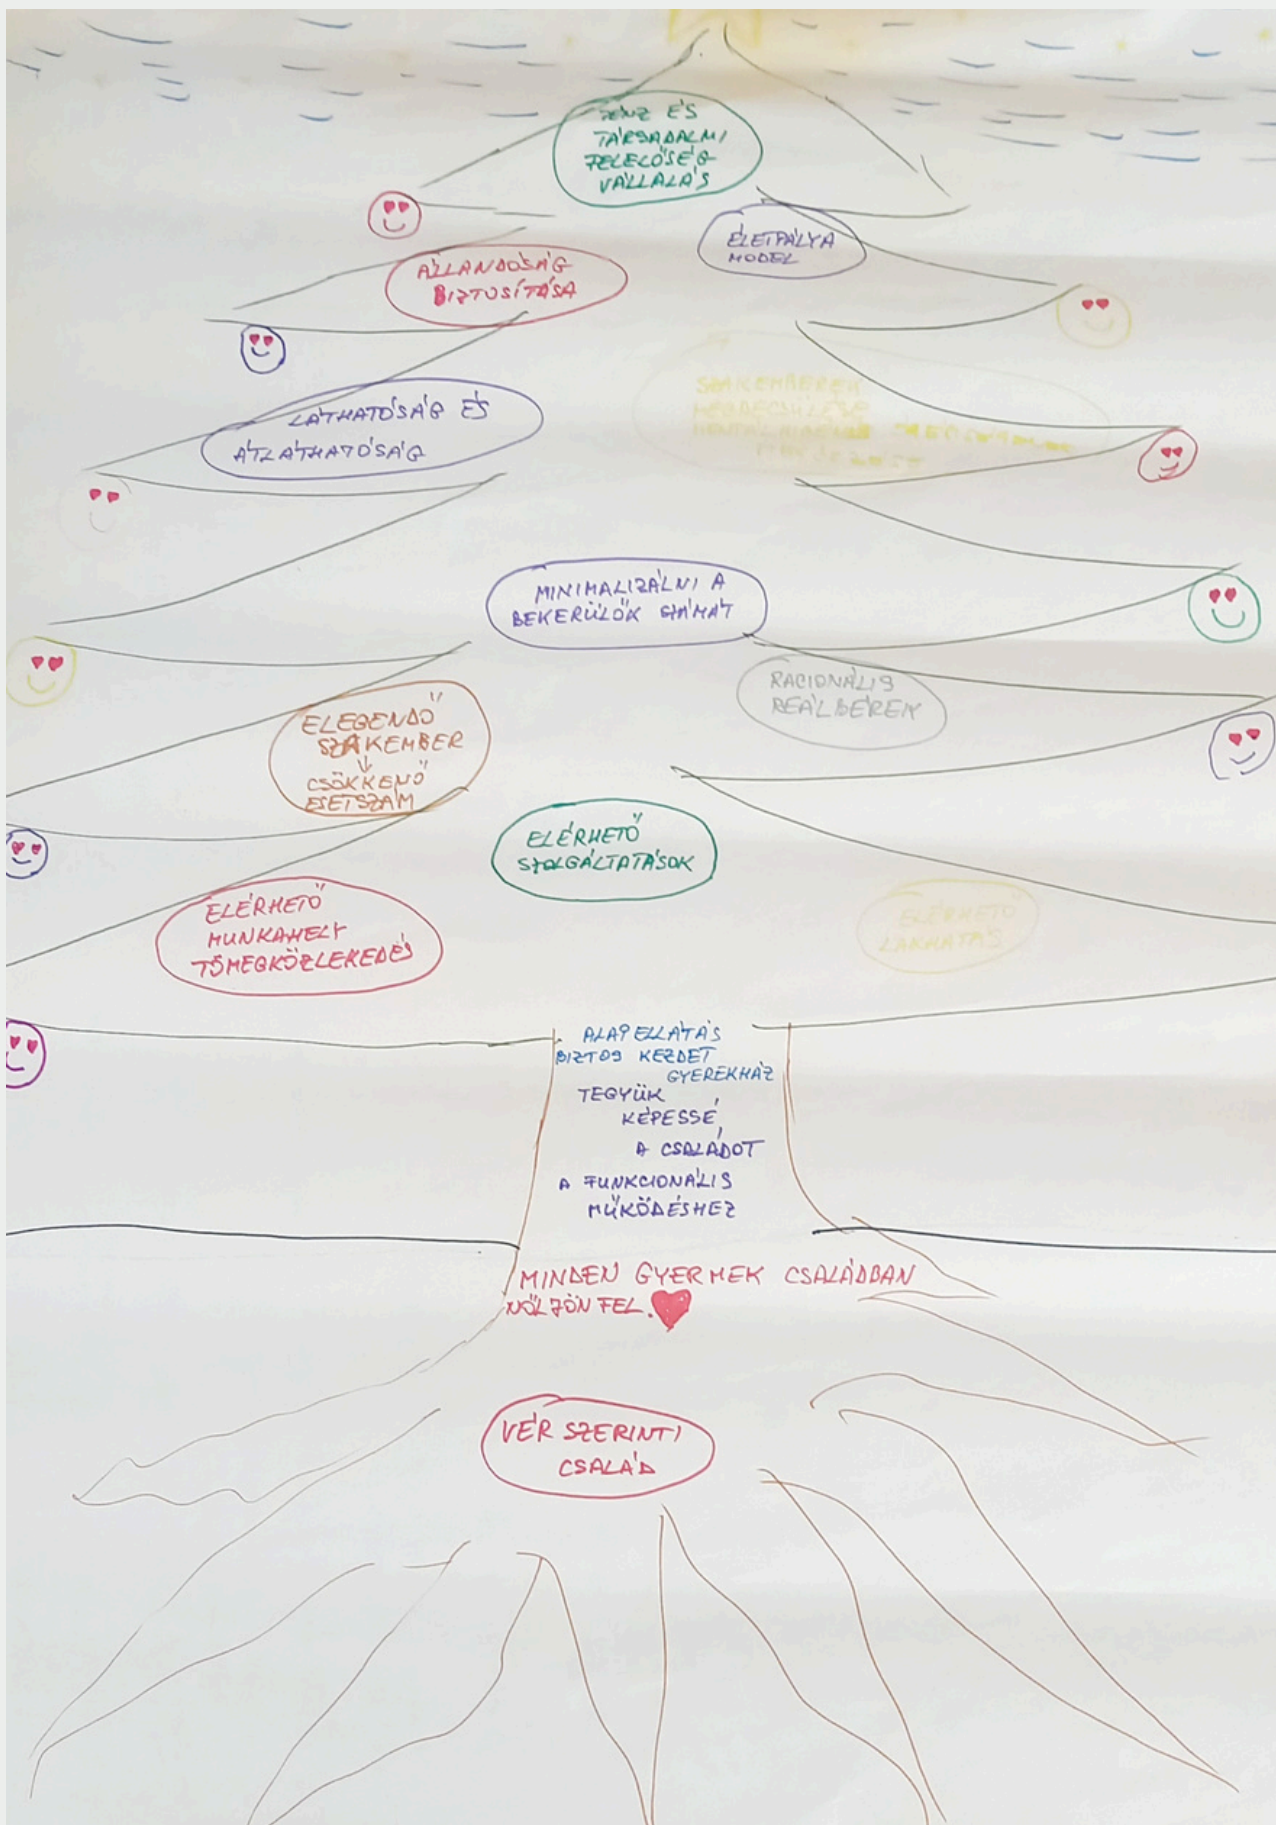 PÉNZ ÉS
TÁRSADALMI
FELELŐSÉG
VÁLLALÁS
ÉLETPÁLYA
MODEL
ÁLLANDÓSÁG
BIZTOSÍTÁSA
LÁTHATÓSÁG ÉS
ÁTLÁTHATÓSÁG
SZAKEMBEREK
MEGBECSÜLÉSE
MINIMALIZÁLNI A
BEKERÜLŐK SZÁMÁT
RACIONÁLIS
REÁLBÉREK
ELEGENDŐ
SZAKEMBER
↓
CSÖKKENŐ
ESETSZÁM
ELÉRHETŐ
SZOLGÁLTATÁSOK
ELÉRHETŐ
MUNKAHELY
TÖMEGKÖZLEKEDÉS
ELÉRHETŐ
LAKHATÁS
ALAPELLÁTÁS
BIZTOS KEZDET
GYEREKHÁZ
TEGYÜK
KÉPESSÉ
A CSALÁDOT
A FUNKCIONÁLIS
MŰKÖDÉSHEZ
MINDEN GYERMEK CSALÁDBAN
NŐLJÖN FEL.
VÉR SZERINTI
CSALÁD